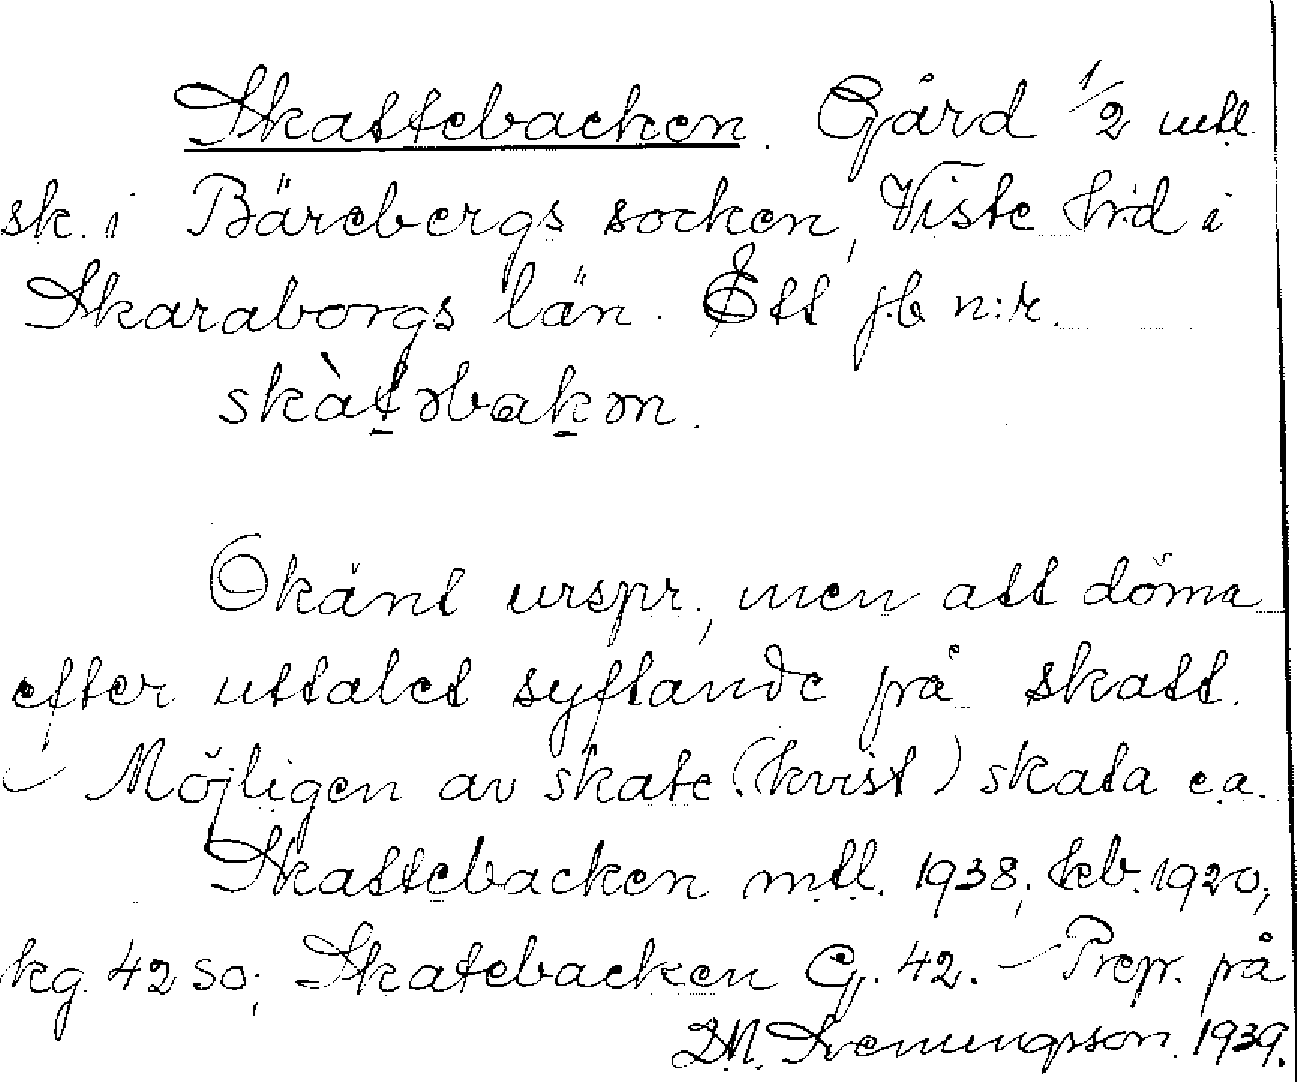 Skattebacken. Gård 1/2 mtl
sk. i Bärebergs socken, Viste hrd i
Skaraborgs län. Ett jb n:r.
skàtəbakən.
Okänt urspr., men att döma
efter uttalet syftande på skatt.
– Möjligen av skate (kvist) skata e.a.
Skattebacken mtl. 1938; jeb. 1920;
kg. 42 SO; Skatebacken G. 42. – Prep. på
1939.